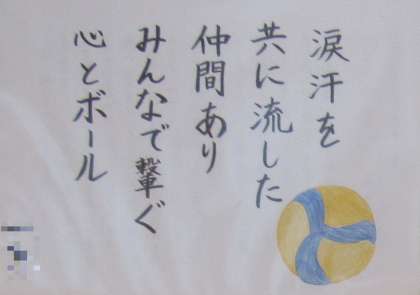 涙汗を
共に流した
仲間あり
みんなで繋ぐ
心とボール